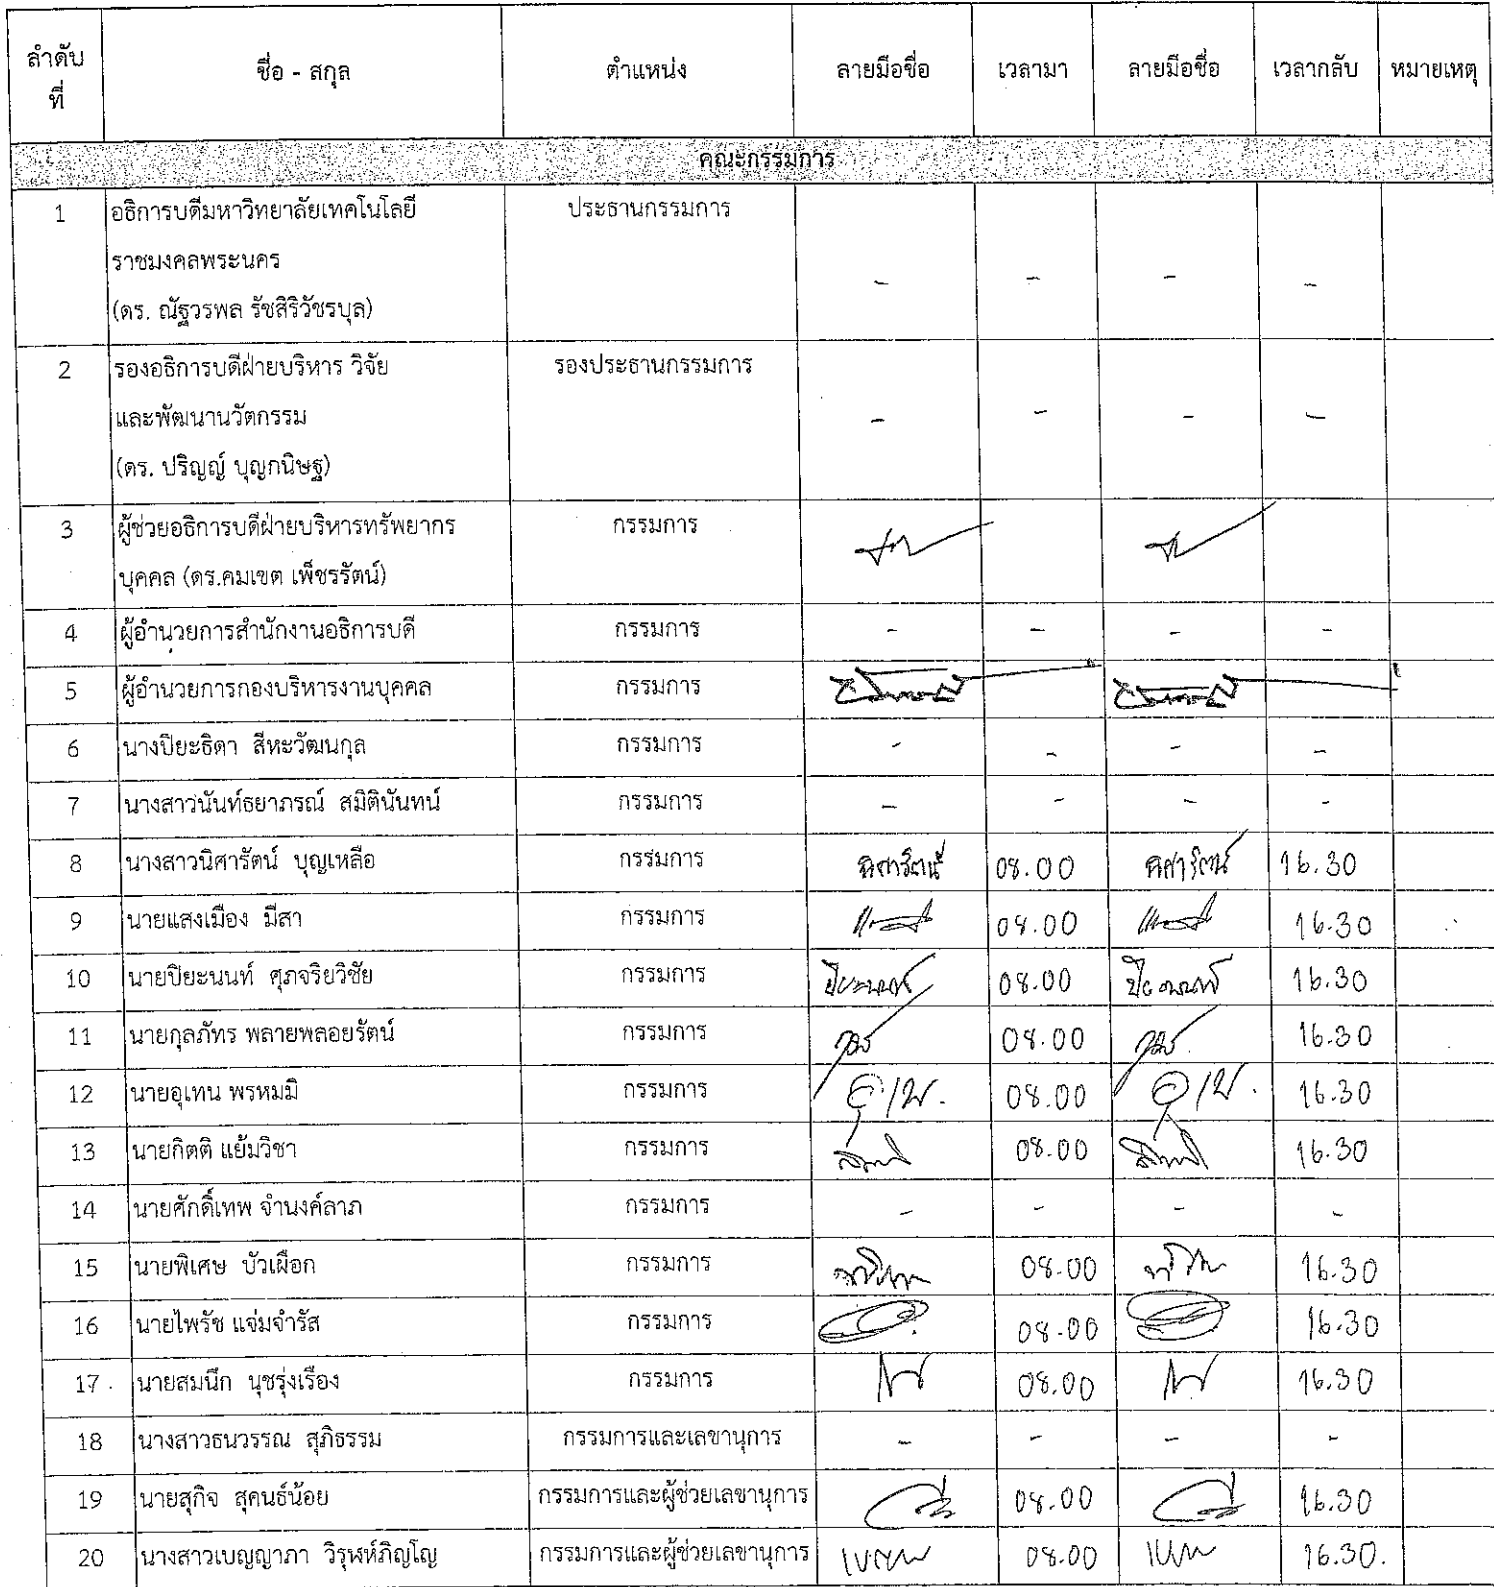 ลำดับ
ที่
ชื่อ - สกุล ตำแหน่ง ลายมือชื่อ เวลามา ลายมือชื่อ เวลากลับ หมายเหตุ
คณะกรรมการ
1 อธิการบดีมหาวิทยาลัยเทคโนโลยี ประธานกรรมการ
ราชมงคลพระนคร
- - - -
(ดร. ณัฐวรพล รัชสิริวัชรบุล)
2 รองอธิการบดีฝ่ายบริหาร วิจัย รองประธานกรรมการ
และพัฒนานวัตกรรม - - - -
(ดร. ปริญญ์ บุญกนิษฐ)
3 ผู้ช่วยอธิการบดีฝ่ายบริหารทรัพยากร กรรมการ
บุคคล (ดร.คมเขต เพ็ชรรัตน์)
4 ผู้อำนวยการสำนักงานอธิการบดี กรรมการ - - - -
5 ผู้อำนวยการกองบริหารงานบุคคล กรรมการ
6 นางปิยะธิดา สีหะวัฒนกุล กรรมการ - - - -
7 นางสาวนันท์ธยาภรณ์ สมิตินันทน์ กรรมการ - - - -
8 นางสาวนิศารัตน์ บุญเหลือ กรรมการ นิศารัตน์ 08.00 นิศารัตน์ 16.30
9 นายแสงเมือง มีสา กรรมการ 08.00 16.30
10 นายปิยะนนท์ ศุภจริยวิชัย กรรมการ ปิยะนนท์ 08.00 ปิยะนนท์ 16.30
11 นายกุลภัทร พลายพลอยรัตน์ กรรมการ 08.00 16.30
12 นายอุเทน พรหมมิ กรรมการ 08.00 16.30
13 นายกิตติ แย้มวิชา กรรมการ 08.00 16.30
14 นายศักดิ์เทพ จำนงค์ลาภ กรรมการ - - - -
15 นายพิเศษ บัวเผือก กรรมการ 08.00 16.30
16 นายไพรัช แจ่มจำรัส กรรมการ 08.00 16.30
17 นายสมนึก นุชรุ่งเรือง กรรมการ 08.00 16.30
18 นางสาวธนวรรณ สุภิธรรม กรรมการและเลขานุการ - - - -
19 นายสุกิจ สุคนธ์น้อย กรรมการและผู้ช่วยเลขานุการ 08.00 16.30
20 นางสาวเบญญาภา วิรุฬห์ภิญโญ กรรมการและผู้ช่วยเลขานุการ 08.00 16.30.